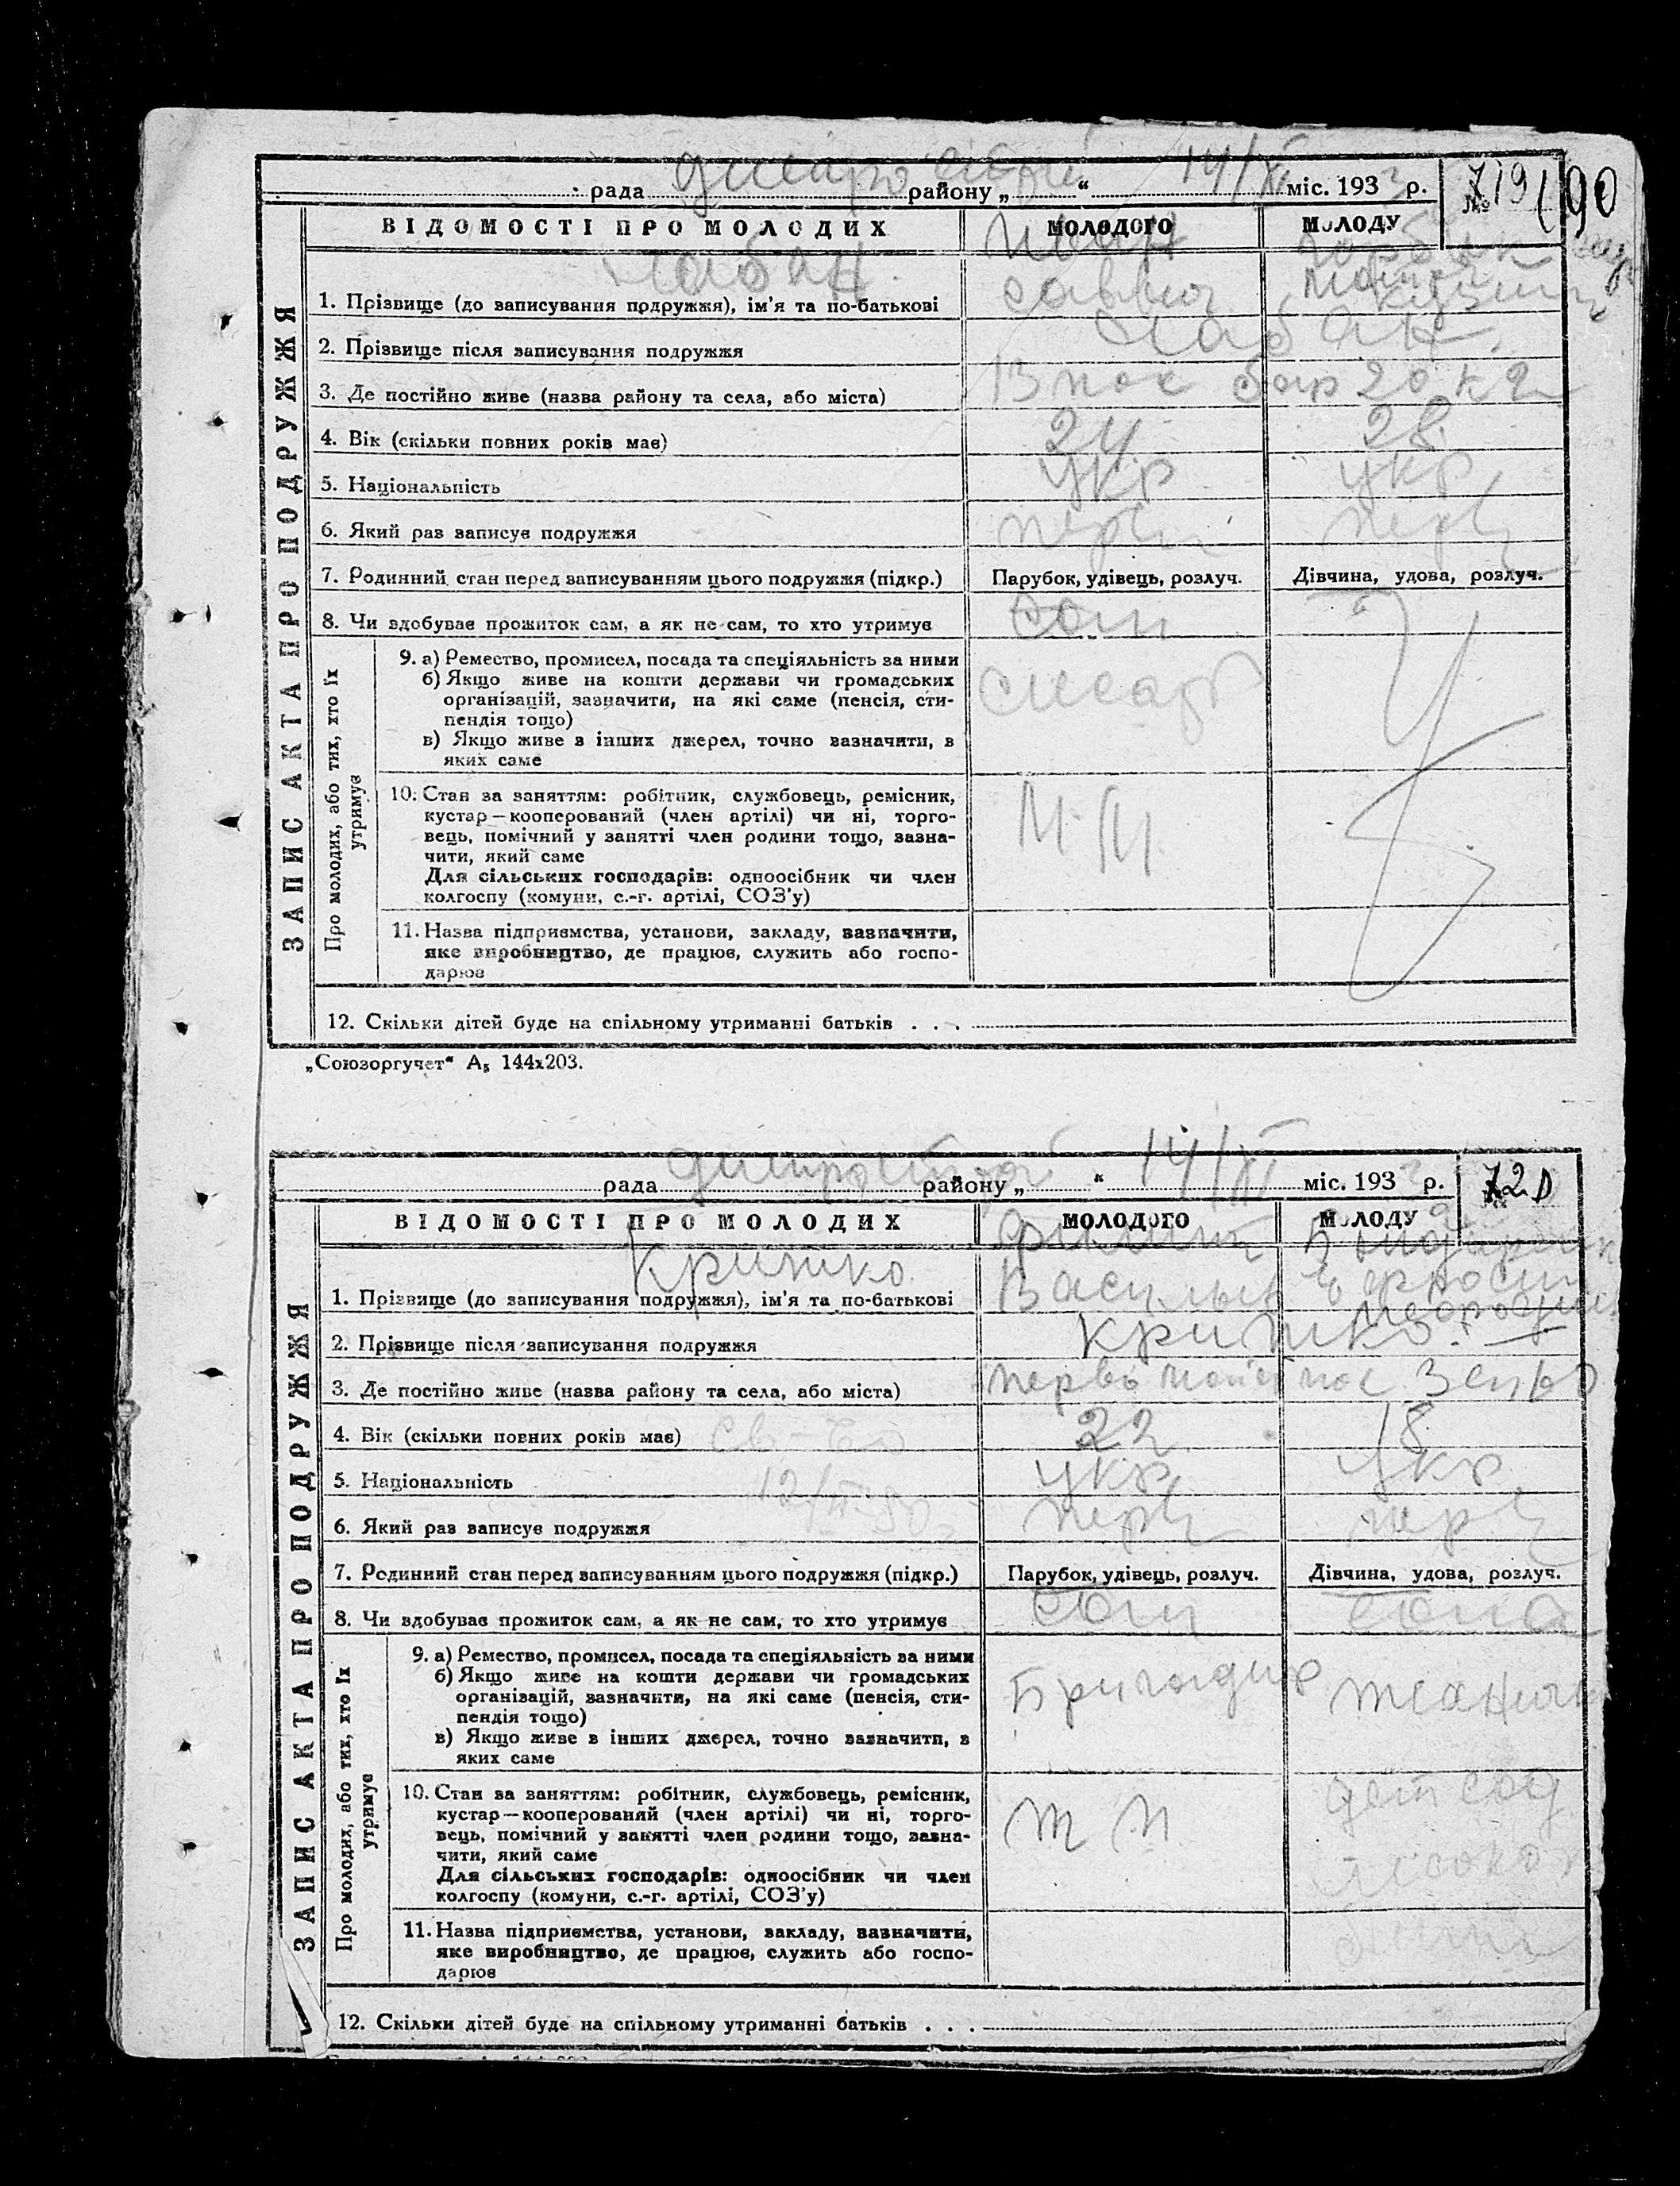 рада Днипрострой району „ “ 14/XI міс. 1933 р. № 719 190
ВІДОМОСТІ ПРО МОЛОДИХ МОЛОДОГО МОЛОДУ
ЗАПИС АКТА ПРО ПОДРУЖЖЯ
Чабан Иван
1. Прізвище (до записування подружжя), ім'я та по-батькові
2. Прізвище після записування подружжя Чабан.
3. Де постійно живе (назва району та села, або міста) пос бар 20 к 2
4. Вік (скільки повних років має) 24 28
5. Національність укр укр
6. Який раз записує подружжя перв перв
7. Родинний стан перед записуванням цього подружжя (підкр.) Парубок, удівець, розлуч. Дівчина, удова, розлуч.
8. Чи здобуває прожиток сам, а як не сам, то хто утримує сам
Про молодих, або тих, хто їх утримує
9. а) Ремество, промисел, посада та спеціяльність за ними
б) Якщо живе на кошти держави чи громадських
організацій, зазначити, на які саме (пенсія, сти-
пендія тощо)
в) Якщо живе з інших джерел, точно зазначити, з
яких саме
слесарь
10. Стан за заняттям: робітник, службовець, ремісник,
кустар—кооперований (член артілі) чи ні, торго-
вець, помічний у занятті член родини тощо, зазна-
чити, який саме
Для сільських господарів: одноосібник чи член
колгоспу (комуни, с.-г. артілі, СОЗ'у)
11. Назва підприємства, установи, закладу, зазначити,
яке виробництво, де працює, служить або госпо-
дарює
12. Скільки дітей буде на спільному утриманні батьків . . .
„Союзоргучет“ А₅ 144х203.
рада Днипрострой району „ “ 14/XI міс. 193 р. № 720
ВІДОМОСТІ ПРО МОЛОДИХ МОЛОДОГО МОЛОДУ
ЗАПИС АКТА ПРО ПОДРУЖЖЯ
Кришко
1. Прізвище (до записування подружжя), ім'я та по-батькові Василь
2. Прізвище після записування подружжя Кришко.
3. Де постійно живе (назва району та села, або міста) Первомайс пос
4. Вік (скільки повних років має) 22 18
5. Національність укр укр
6. Який раз записує подружжя перв перв
7. Родинний стан перед записуванням цього подружжя (підкр.) Парубок, удівець, розлуч. Дівчина, удова, розлуч.
8. Чи здобуває прожиток сам, а як не сам, то хто утримує сам сама
Про молодих, або тих, хто їх утримує
9. а) Ремество, промисел, посада та спеціяльність за ними
б) Якщо живе на кошти держави чи громадських
організацій, зазначити, на які саме (пенсія, сти-
пендія тощо)
в) Якщо живе з інших джерел, точно зазначити, з
яких саме
Бригадир
10. Стан за заняттям: робітник, службовець, ремісник,
кустар—кооперований (член артілі) чи ні, торго-
вець, помічний у занятті член родини тощо, зазна-
чити, який саме
Для сільських господарів: одноосібник чи член
колгоспу (комуни, с.-г. артілі, СОЗ'у)
дет сад
11. Назва підприємства, установи, закладу, зазначити,
яке виробництво, де працює, служить або госпо-
дарює
12. Скільки дітей буде на спільному утриманні батьків . . .